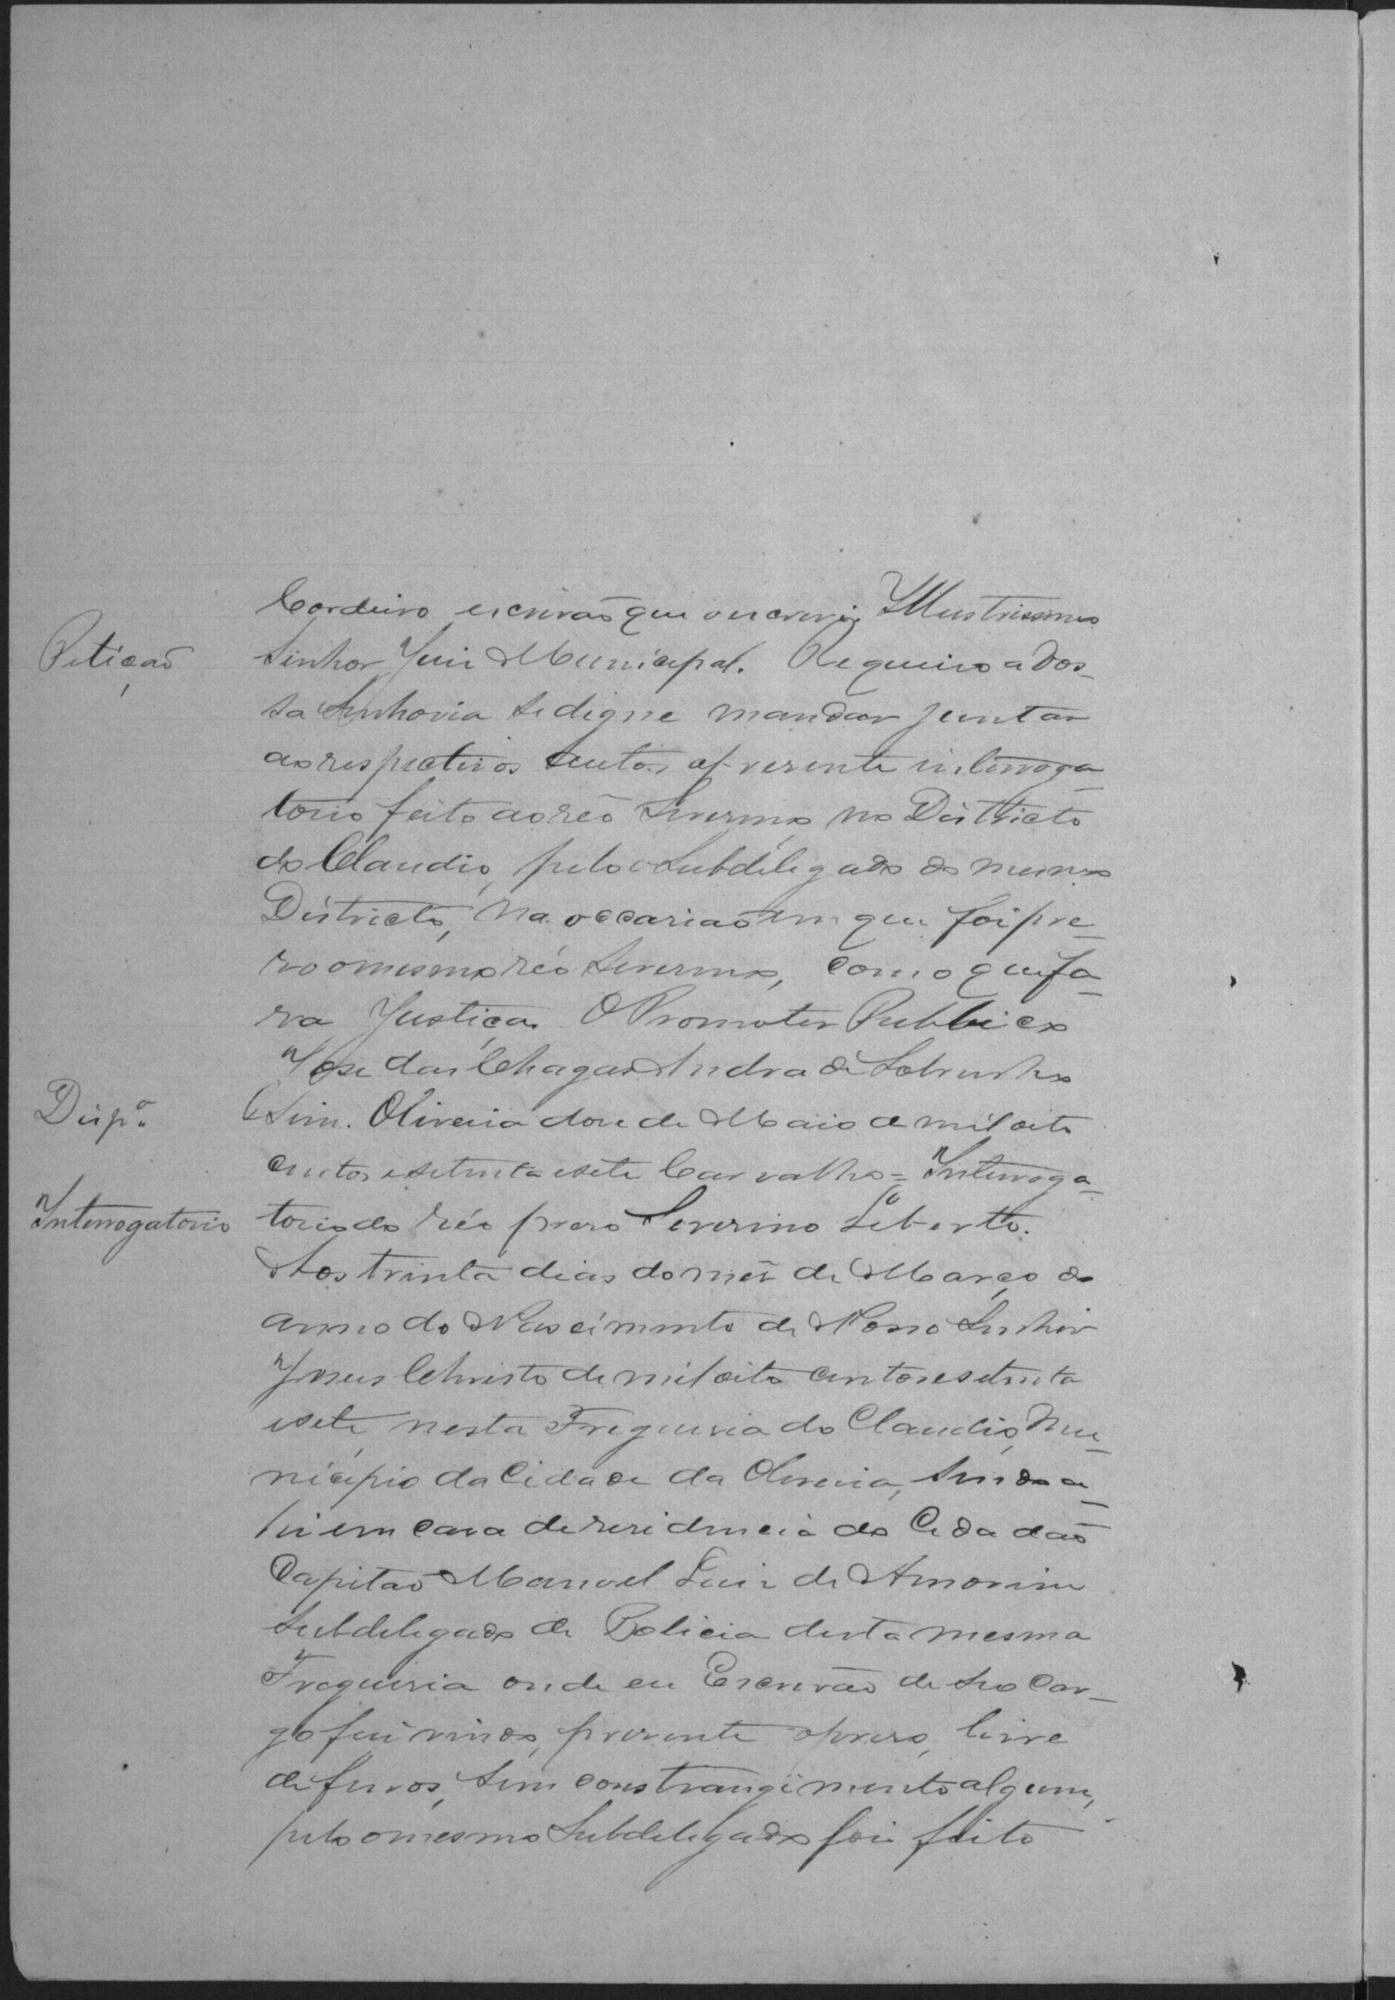 Cordeiro escrivaõ que o escrevi. Illustrissimo
Petiçaõ
Senhor Juiz Municipal. Requeiro a Vos-
sa Senhoria se digne mandar juntar
aos respectivos autos o presente interroga-
torio feito ao réo Severino no Districto
do Claudio, pelo Subdelegado do mesmo
Districto, na occasiaõ em que foi pre-
so o mesmo réo Severino, com o que fa-
ra Justiça. O Promotor Publico
José das Chagas Andrade Sobrinho
Disp.º
Sim. Oliveira doze de Maio de mil oito
centos e setenta e sete Carvalho = Interroga-
Interrogatorio
torio do réo preso Severino Liberto.
Aos trinta dias do mêz de Março do
anno do Nascimento de Nosso Senhor
Jesus Christo de mil oito centos e setenta
e sete, nesta Freguesia do Claudio, Mu-
nicipio da Cidade da Oliveira, sendo a-
hi em casa de residencia do Cidadaõ
Capitaõ Manoel Luiz de Amorim
Subdelegado de Policia desta mesma
Freguesia onde eu Escrivaõ de seo car-
go fui vindo, presente o preso, livre
de ferros, sem constrangimento algum,
pelo mesmo Subdelegado foi feito